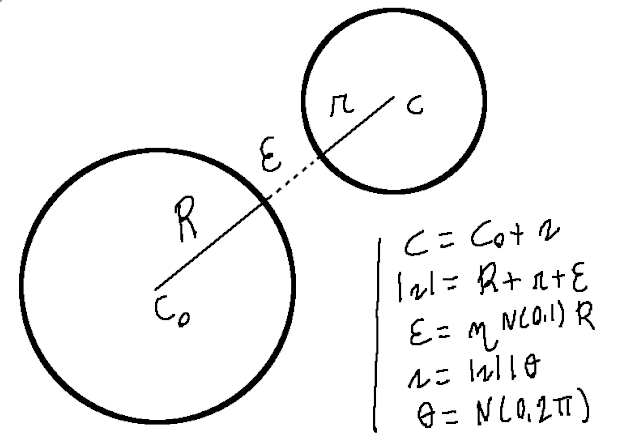 r
C
ε
R
C₀
C = C₀ + r
|r| = R + r + ε
ε = η^N(0,1) R
r = |r| | θ
θ = N(0, 2π)